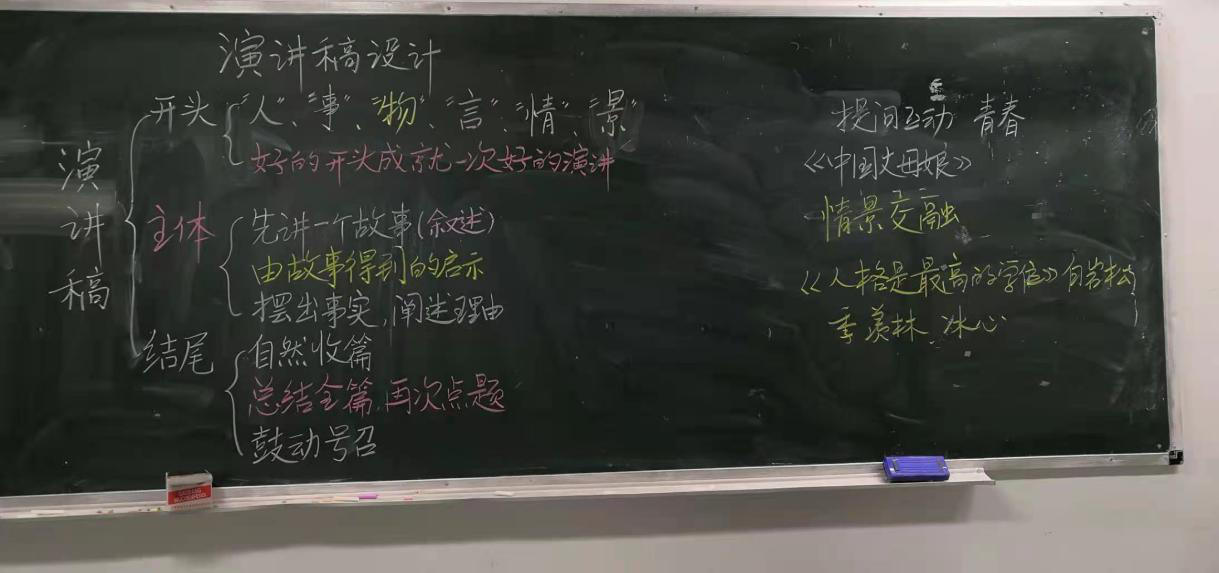 演讲稿设计
演讲稿
开头
"人"、"事"、"物"、"言"、"情"、"景"
好的开头成就一次好的演讲
主体
先讲一个故事(叙述)
由故事得到的启示
摆出事实,阐述理由
结尾
自然收篇
总结全篇,再次点题
鼓动号召
提问互动 青春
《中国丈母娘》
情景交融
《人格是最高的学位》白岩松
季羡林、冰心